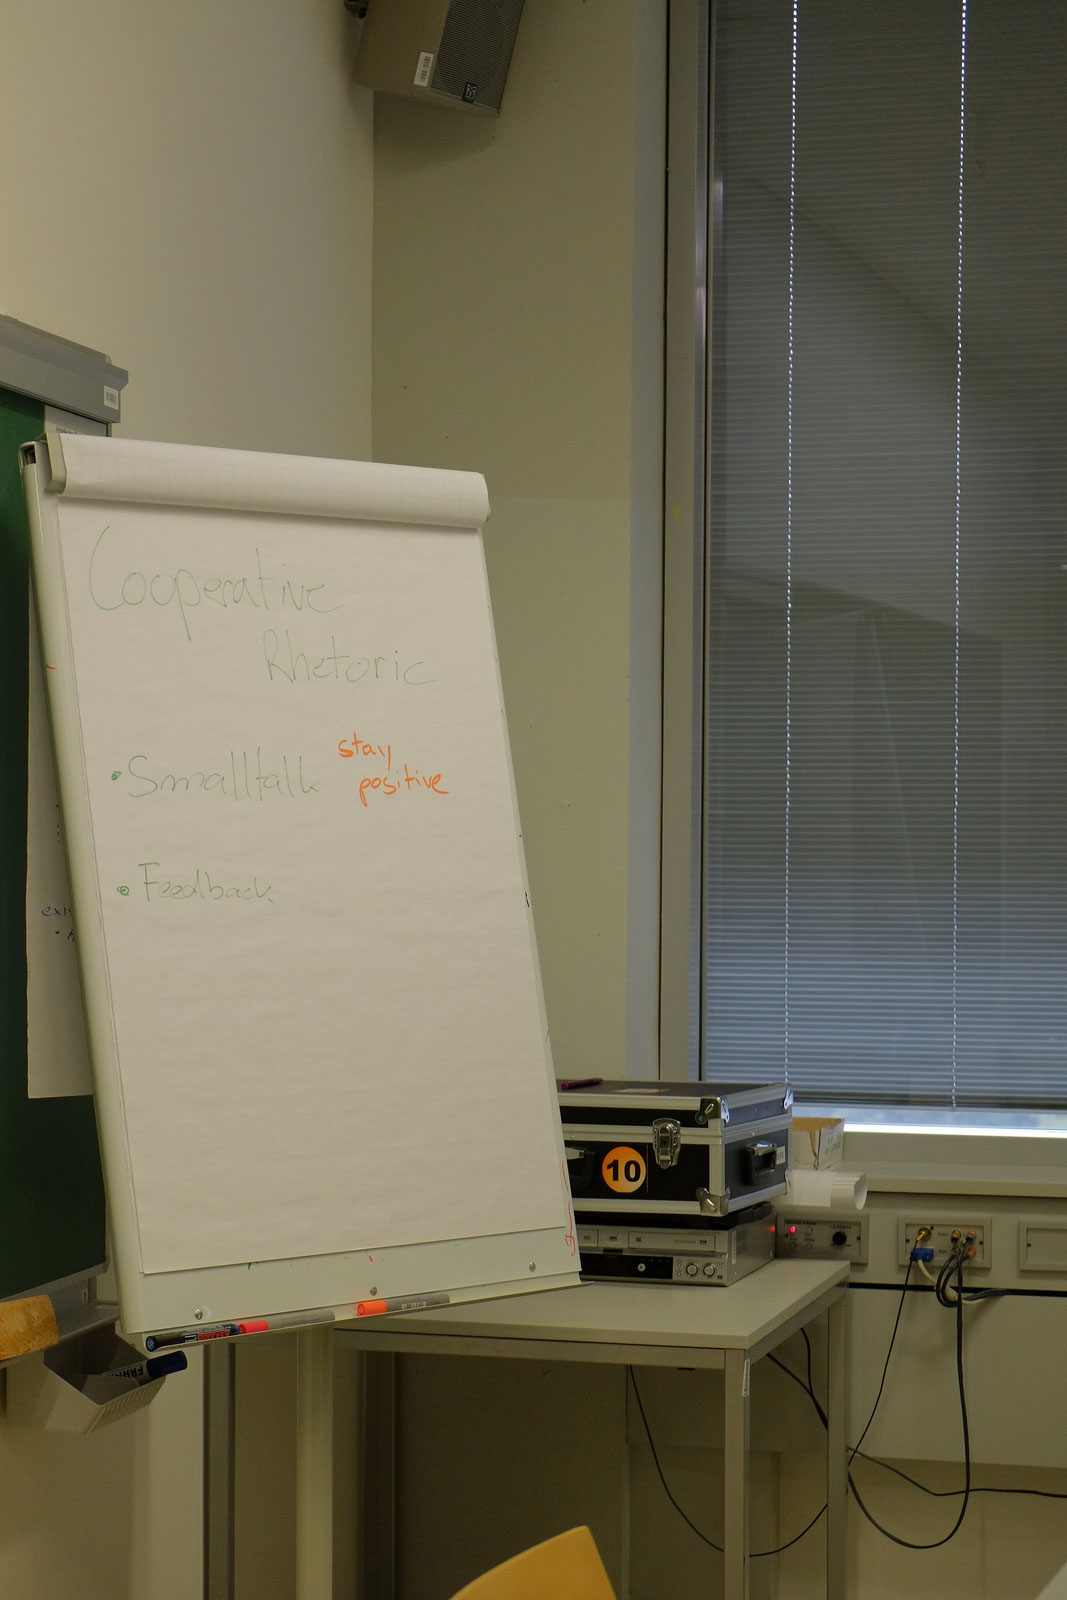 Cooperative
Rhetoric
• Smalltalk
stay
positive
• Feedback
10